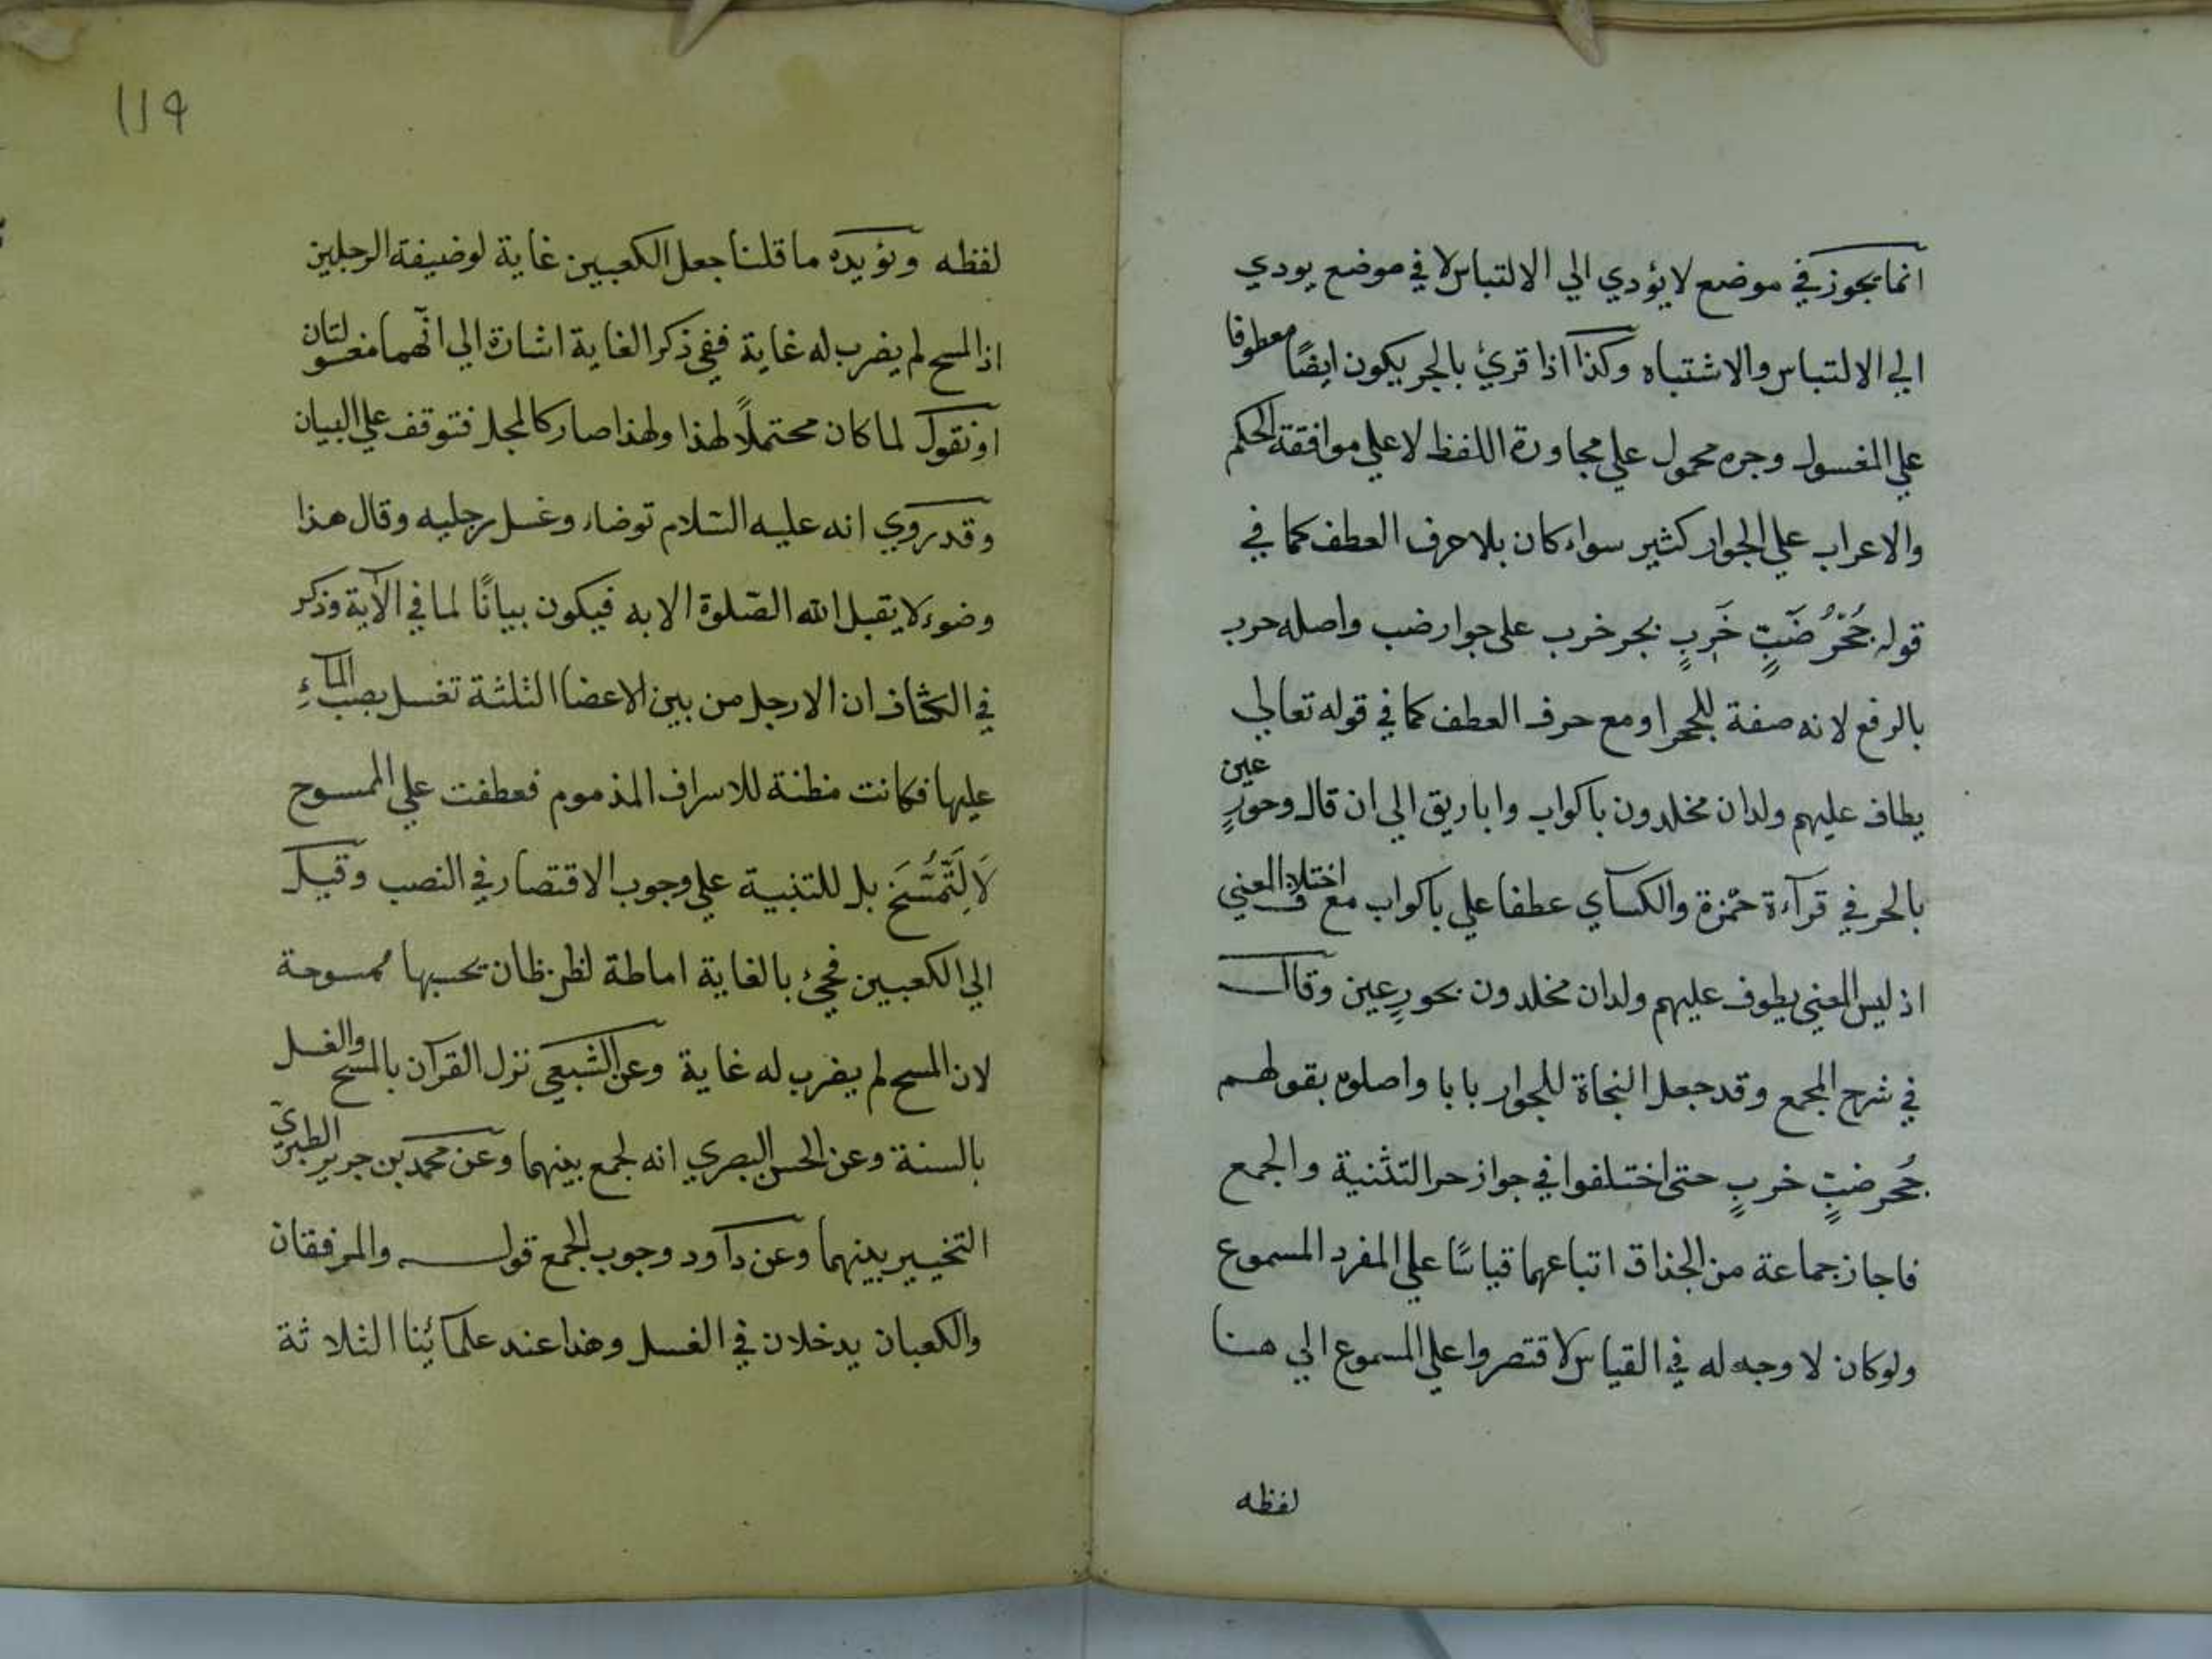 انما يجوز في موضع لا يؤدي الي الالتباس لا في موضع يودي
الي الالتباس والاشتباه وكذا اذا قرئ بالجر يكون ايضًا معطوفا
علي المغسول وجره محمول علي مجاورة اللفظ لا علي موافقة الحكم
والاعراب علي الجوار كثير سواء كان بلا حرف العطف كما في
قوله جُحْرُ ضَبٍّ خَرِبٍ بجر خرب علي جوار ضب واصله خرب
بالرفع لانه صفة للجحر او مع حرف العطف كما في قوله تعالي
يطاف عليهم ولدان مخلدون باكواب واباريق الي ان قال وحورٍ عين
بالجر في قرآءة حمزة والكسآي عطفا علي باكواب مع اختلاف المعني
اذ ليس المعني يطوف عليهم ولدان مخلدون بحورٍ عين وقال
في شرح المجمع وقد جعل النحاة للجوار بابا واصلوه بقولهم
جُحر ضبٍّ خربٍ حتي اختلفوا في جواز جر التثنية والجمع
فاجاز جماعة من الحذاق اتباعهما قياسًا علي المفرد المسموع
ولو كان لا وجه له في القياس لاقتصروا علي المسموع الي هنا
لفظه
119
لفظه ويؤيده ما قلنا جعل الكعبين غاية لوضيفة الرجلين
اذ المسح لم يضرب له غاية ففي ذكر الغاية اشارة الي انّهما مغسولتان
او نقول لما كان محتملًا لهذا ولهذا صار كالمجمل فتوقف علي البيان
وقد روي انه عليه السّلام توضاء وغسل رجليه وقال هذا
وضوء لا يقبل الله الصّلوة الا به فيكون بيانًا لما في الآية وذكر
في الكشاف ان الارجل من بين الاعضا الثلثة تغسل بصب المآءِ
عليها فكانت مظنة للاسراف المذموم فعطفت علي الممسوح
لَا لِتُمْسَحَ بل للتنبيه علي وجوب الاقتصار في النصب وقيل
الي الكعبين فجئ بالغاية اماطة لظن ظان يحسبها ممسوحة
لان المسح لم يضرب له غاية وعن الشبعي نزل القرآن بالمسح والغسل
بالسنة وعن الحسن البصري انه لجمع بينهما وعن محمد بن جرير الطبريّ
التخيير بينهما وعن دآود وجوب الجمع قوله والمرفقان
والكعبان يدخلان في الغسل وهذا عند علمآئنا الثلاثة